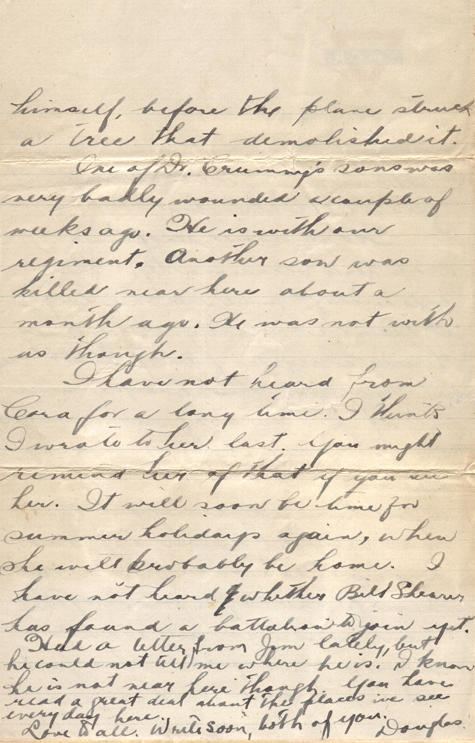 himself, before the plane struck
a tree that demolished it.
One of Dr. Crummy's sons was
very badly wounded a couple of
weeks ago. He is with our
regiment. Another son was
killed near here about a
month ago. He was not with
us though.
I have not heard from
Cora for a long time. I think
I wrote to her last. You might
remind her of that if you see
her. It will soon be time for
summer holidays again, when
she will probably be home. I
have not heard whether Bill Shearer
has found a battalion to join yet.
Had a letter from Jim lately, but
he could not tell me where he is. I know
he is not near here though. You have
read a great deal about the places we see
every day here.
Love to all. Write soon, both of you.
Douglas.